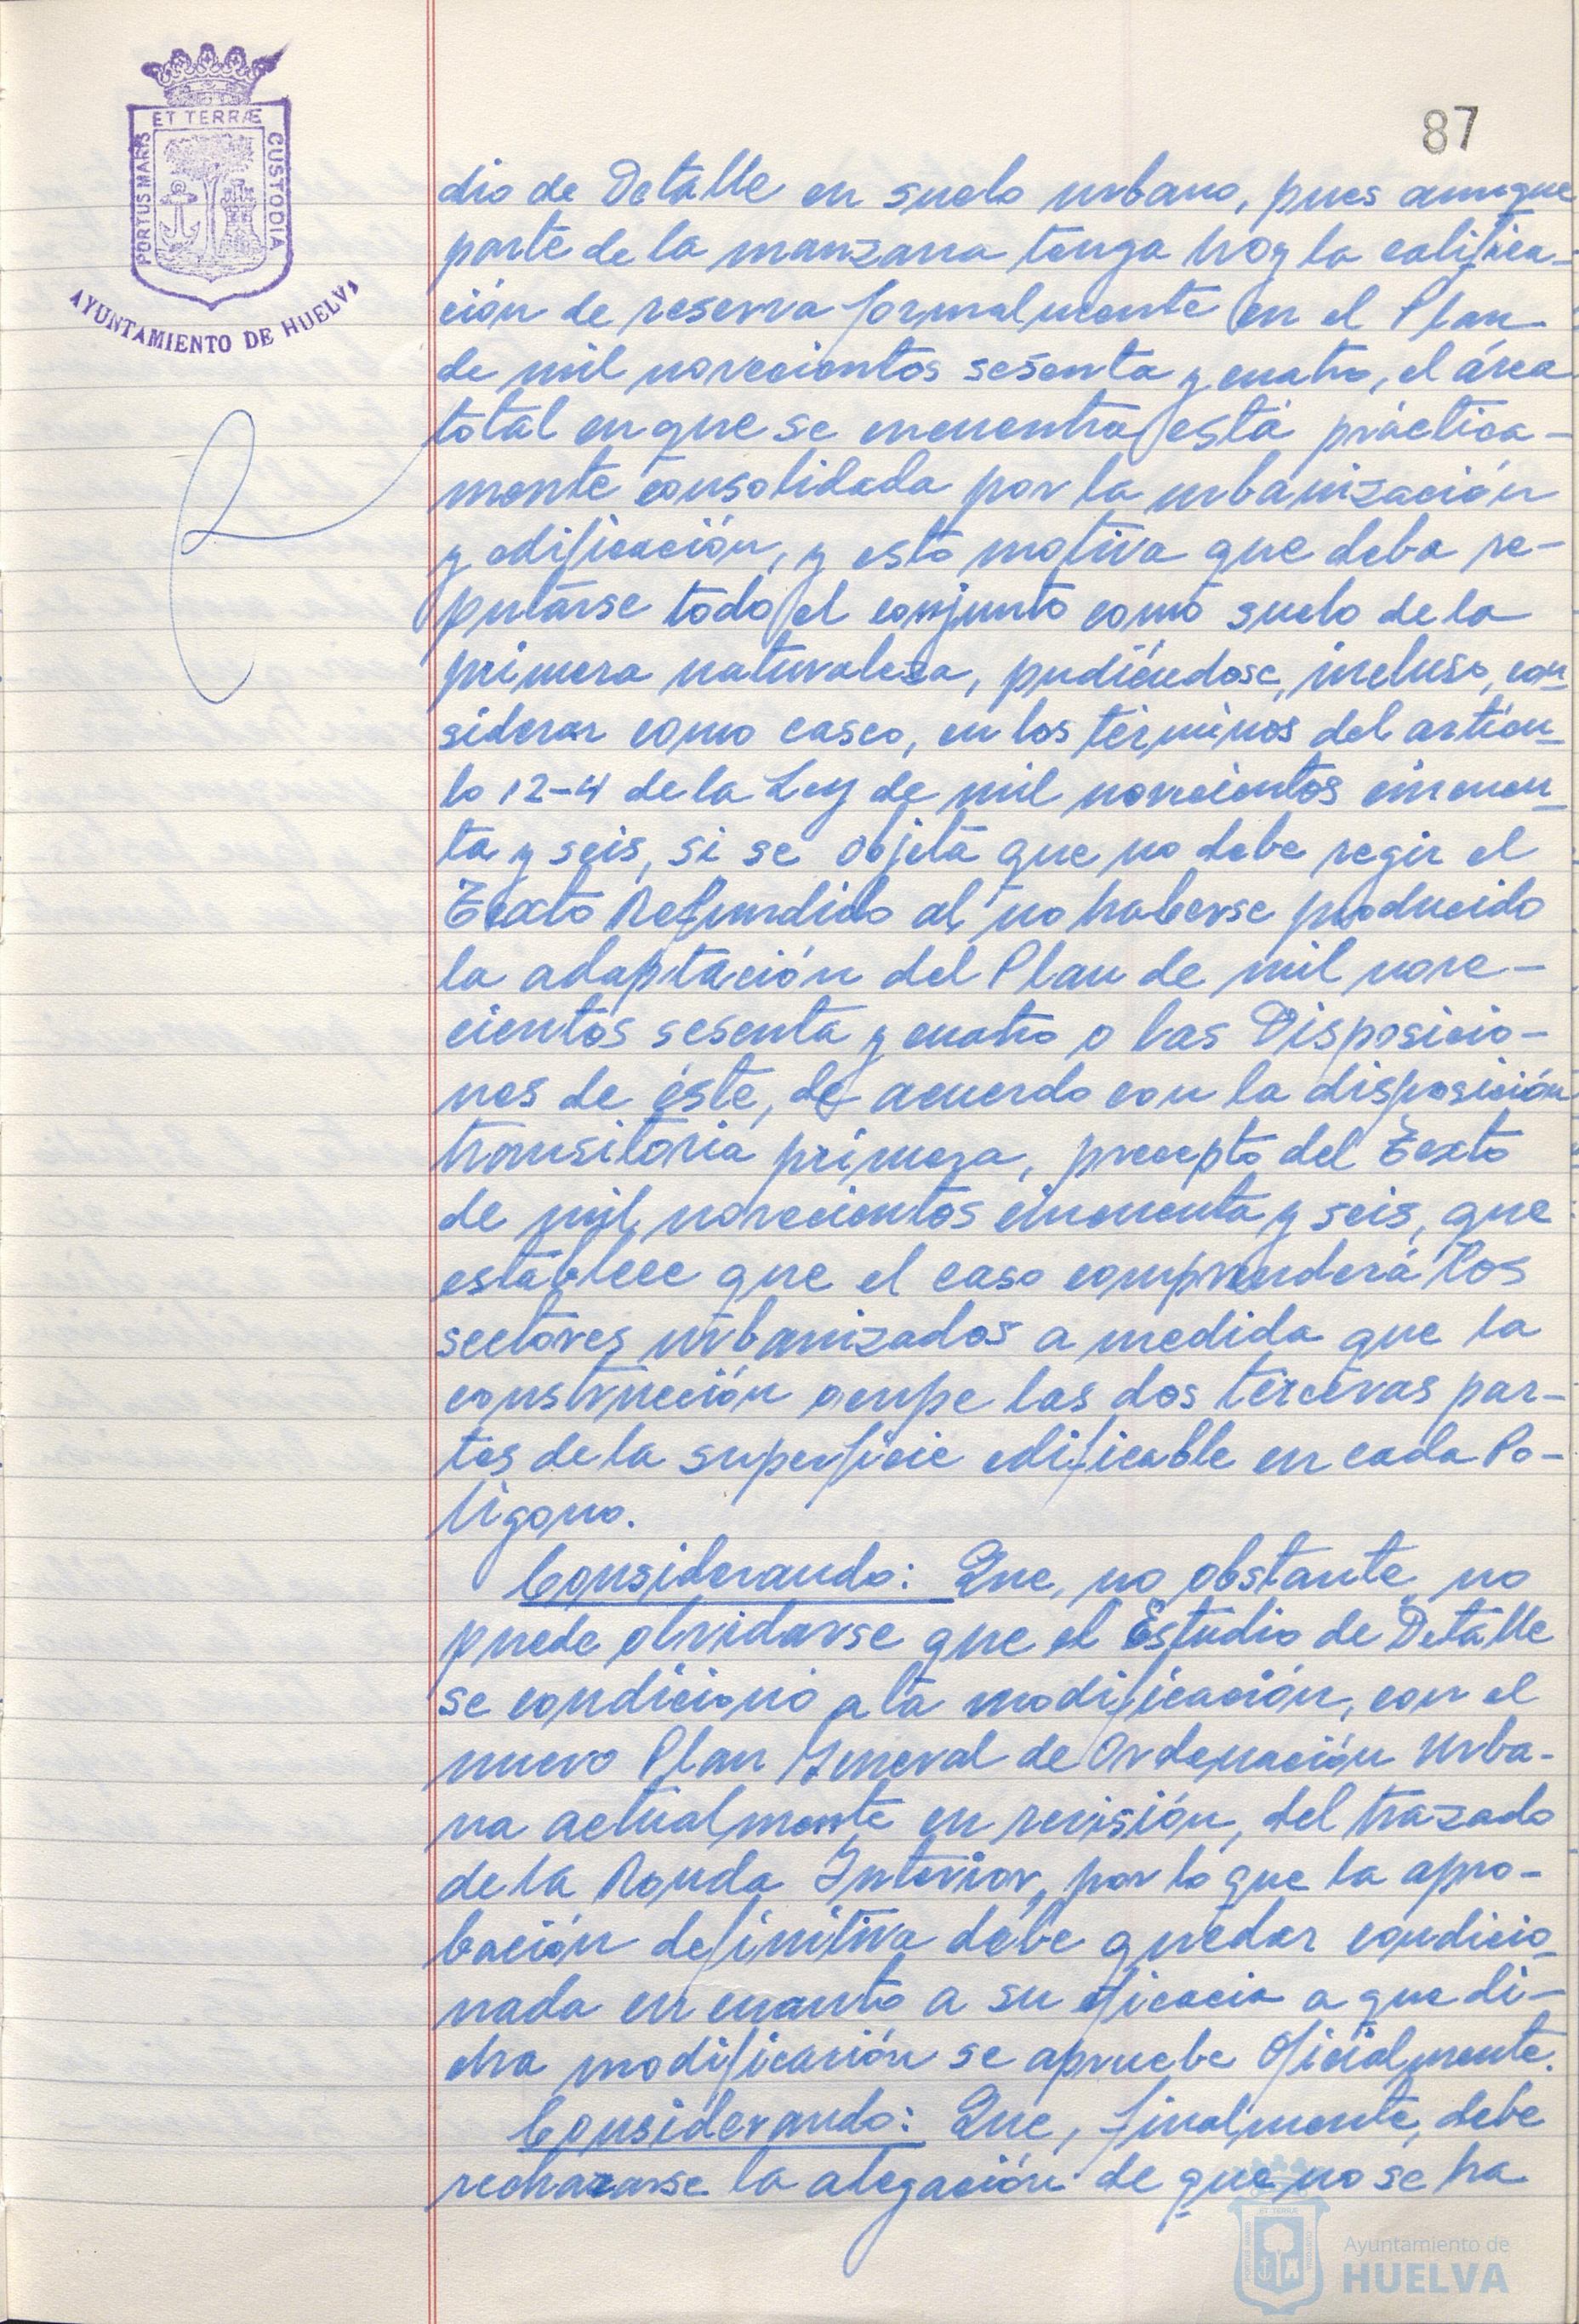 ET TERRÆ
PORTUS MARIS
CUSTODIA
AYUNTAMIENTO DE HUELVA
87
dio de Detalle en suelo urbano, pues aunque
parte de la manzana tenga hoy la califica-
ción de reserva formalmente en el Plan
de mil novecientos sesenta y cuatro, el área
total en que se encuentra está práctica-
mente consolidada por la urbanización
y edificación, y esto motiva que deba re-
putarse todo el conjunto como suelo de la
primera naturaleza, pudiéndose, incluso, con-
siderar como casco, en los términos del artícu-
lo 12-4 de la Ley de mil novecientos cincuen-
ta y seis, si se objeta que no debe regir el
Texto Refundido al no haberse producido
la adaptación del Plan de mil nove-
cientos sesenta y cuatro a las Disposicio-
nes de éste, de acuerdo con la disposición
transitoria primera, precepto del Texto
de mil novecientos cincuenta y seis, que
establece que el caso comprenderá los
sectores urbanizados a medida que la
construcción ocupe las dos terceras par-
tes de la superficie edificable en cada Po-
lígono.
Considerando: Que, no obstante, no
puede olvidarse que el Estudio de Detalle
se condicionó a la modificación, con el
nuevo Plan General de Ordenación Urba-
na actualmente en revisión, del trazado
de la Ronda Interior, por lo que la apro-
bación definitiva debe quedar condicio-
nada en cuanto a su eficacia a que di-
cha modificación se apruebe oficialmente.
Considerando: Que, finalmente, debe
rechazarse la alegación de que no se ha
Ayuntamiento de
HUELVA